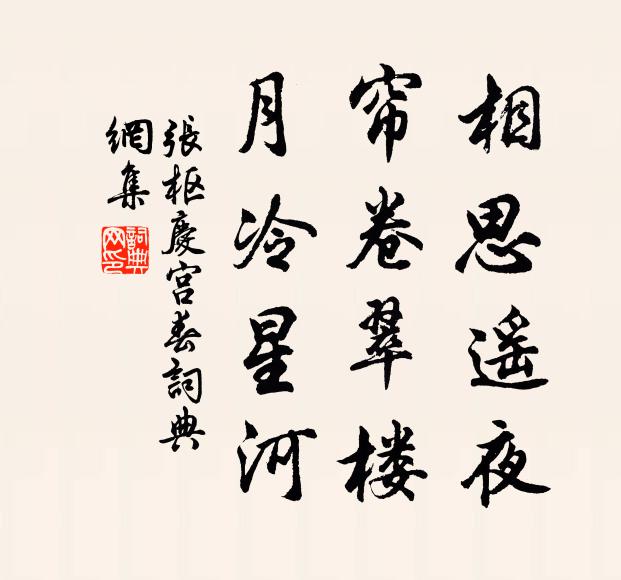 相思遥夜
帘卷翠楼
月冷星河
張枢慶宫春詞典
網集
詞典
网印